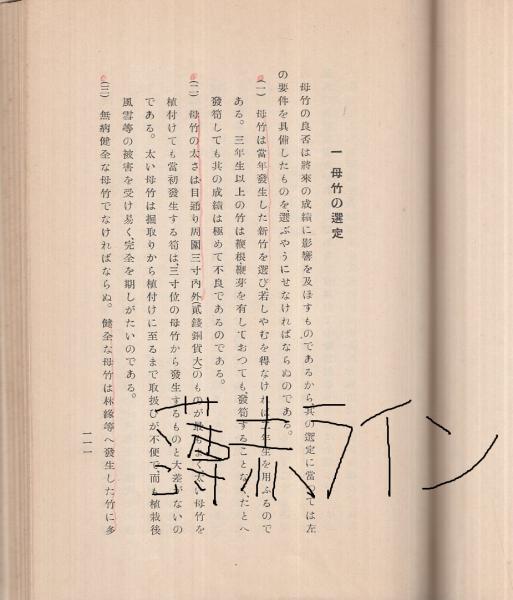 一 母竹の選定
母竹の良否は將來の成績に影響を及ぼすものであるから、其の選定に當つては左
の要件を具備したものを選ぶやうにせなければならぬのである。
(一) 母竹は當年發生した新竹を選び、若しやむを得なければ二年生を用ふるので
ある。三年生以上の竹は鞭根、鞭芽を有しておつても、發筍することなく、たとへ
發筍しても其の成績は極めて不良であるのである。
(二) 母竹の太さは目通り周圍三寸內外(貳錢銅貨大)のものが最もよく太い母竹を
植付けても當初發生する筍は、三寸位の母竹から發生するものと大差がないの
である。太い母竹は掘取りから植付けに至るまで取扱ひが不便で、而も植栽後
風雪等の被害を受け易く、完全を期しがたいのである。
(三) 無病健全な母竹でなければならぬ。健全な母竹は林緣等へ發生した竹に多
一一一
薄赤ライン